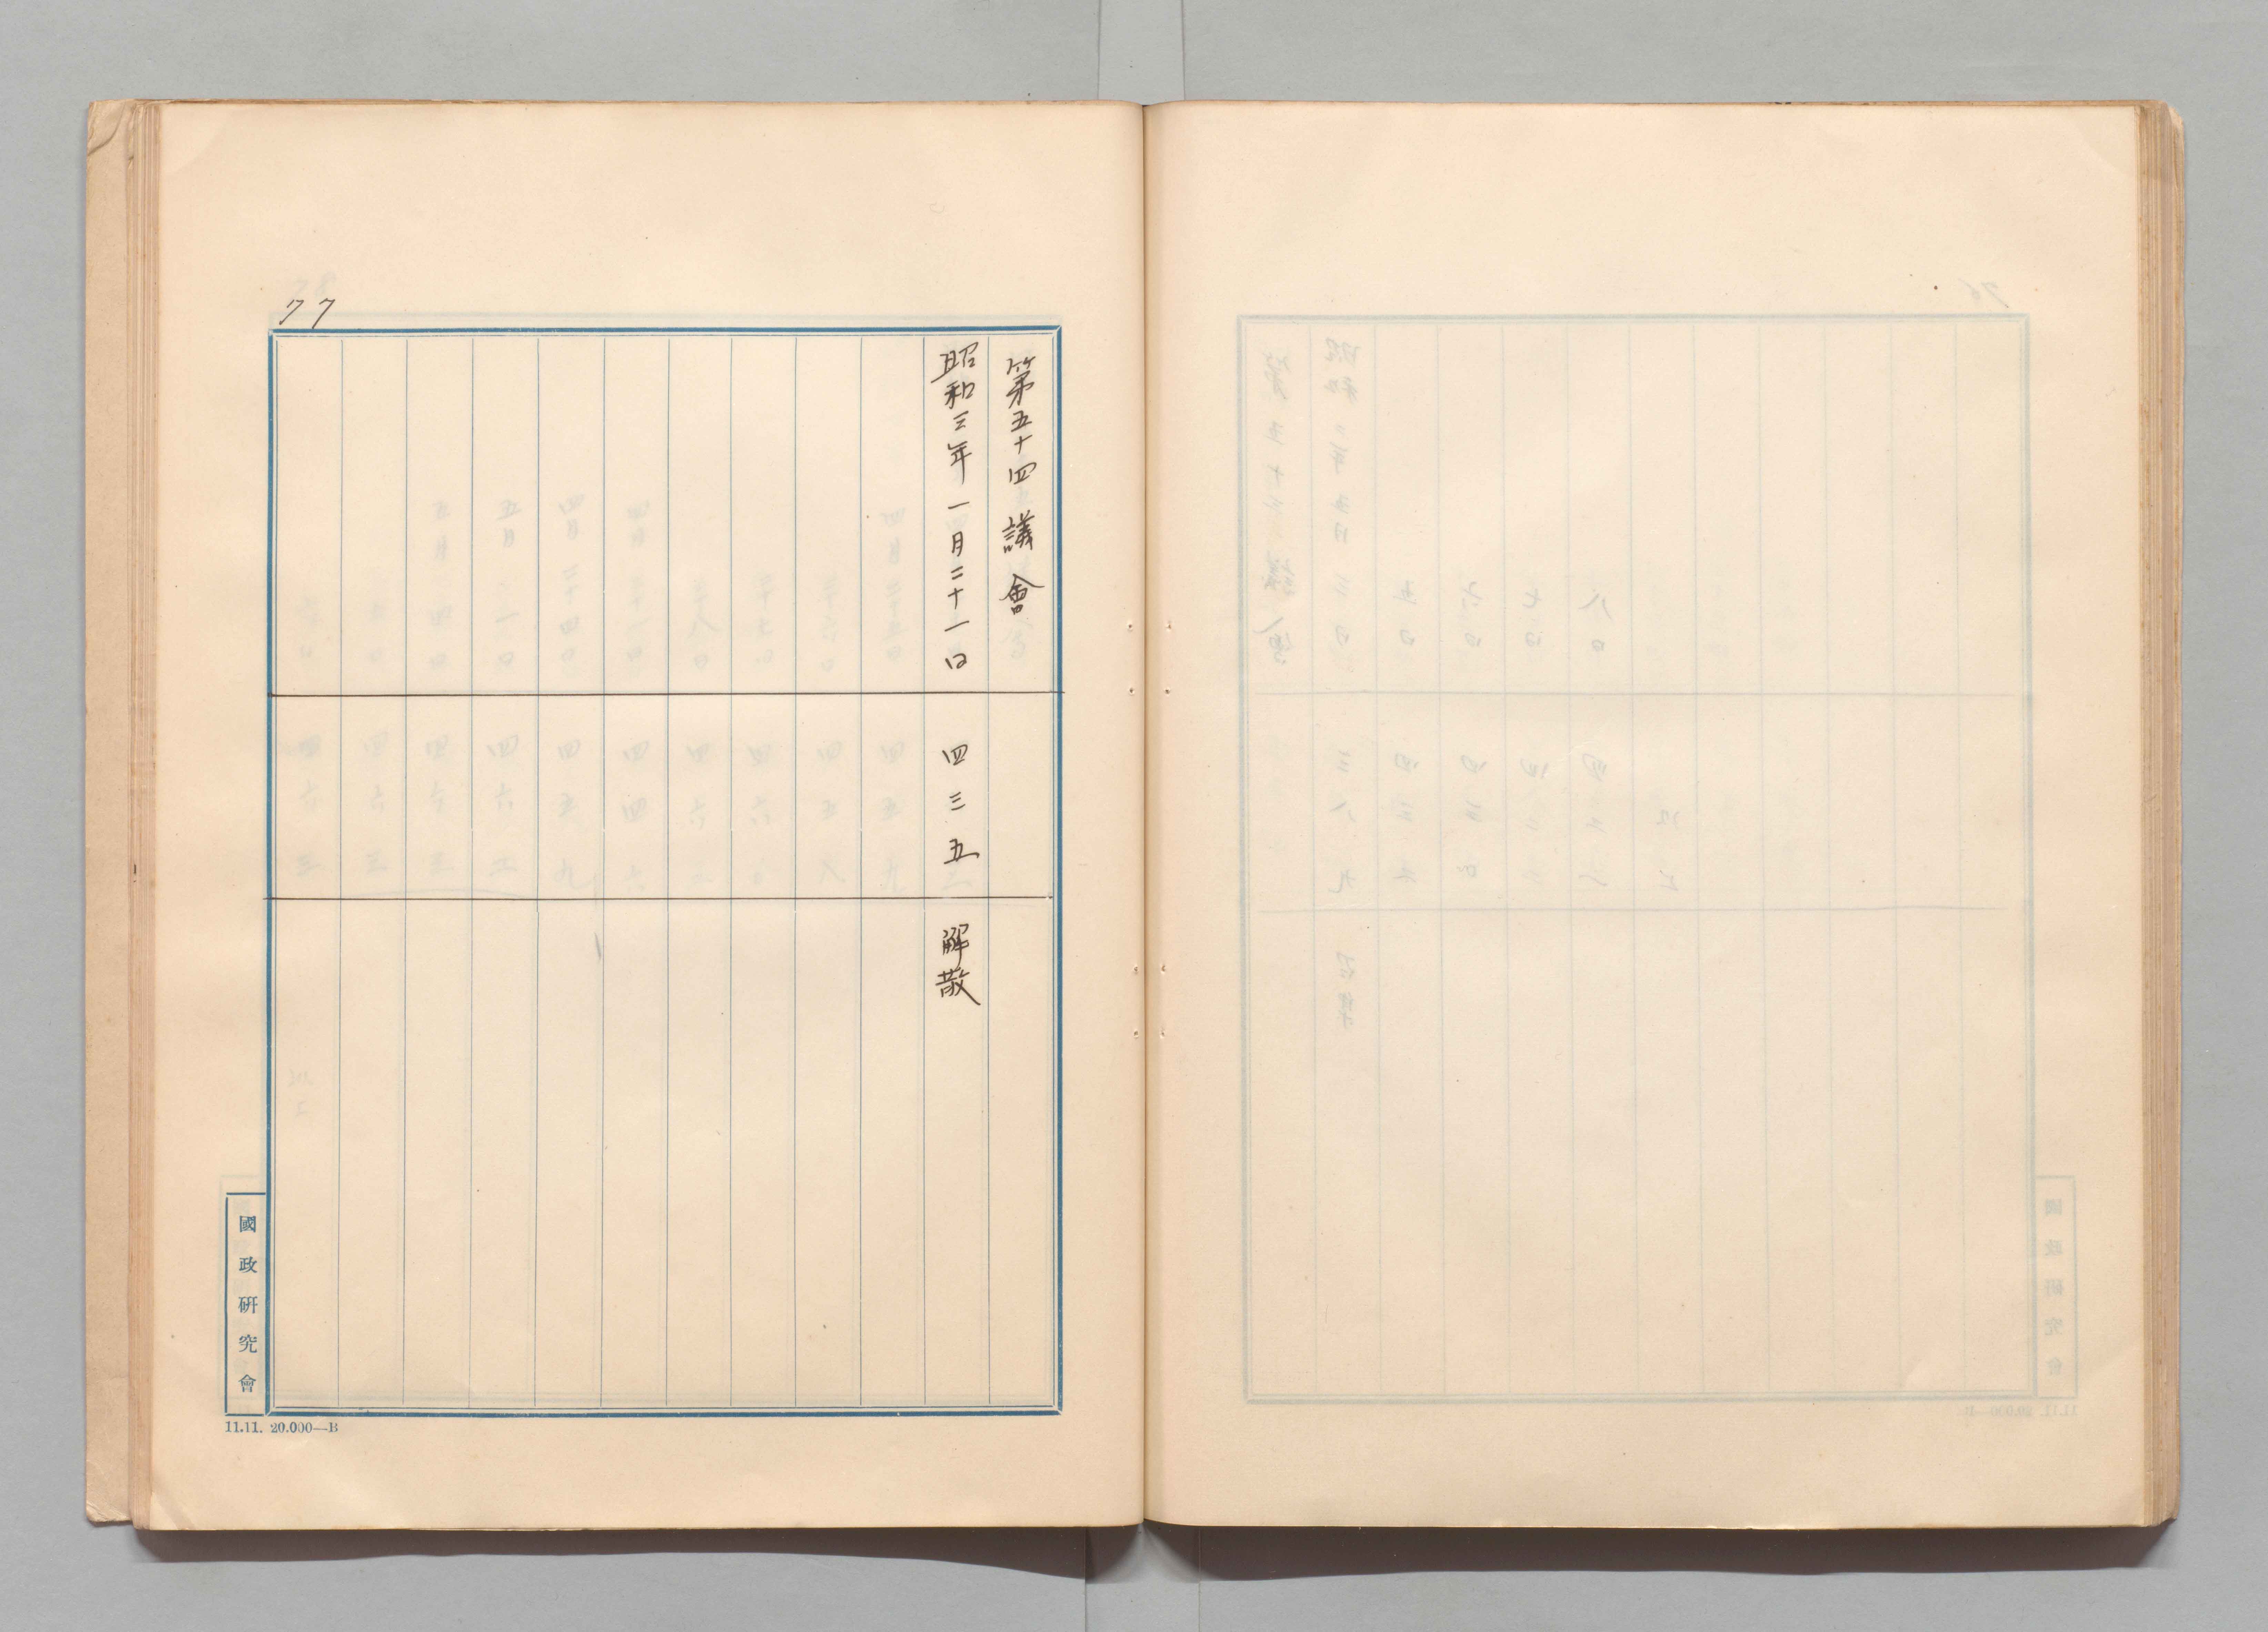 77
第五十四議會
昭和三年一月二十一日 四三五 解散
國政研究會
11.11. 20.000—B